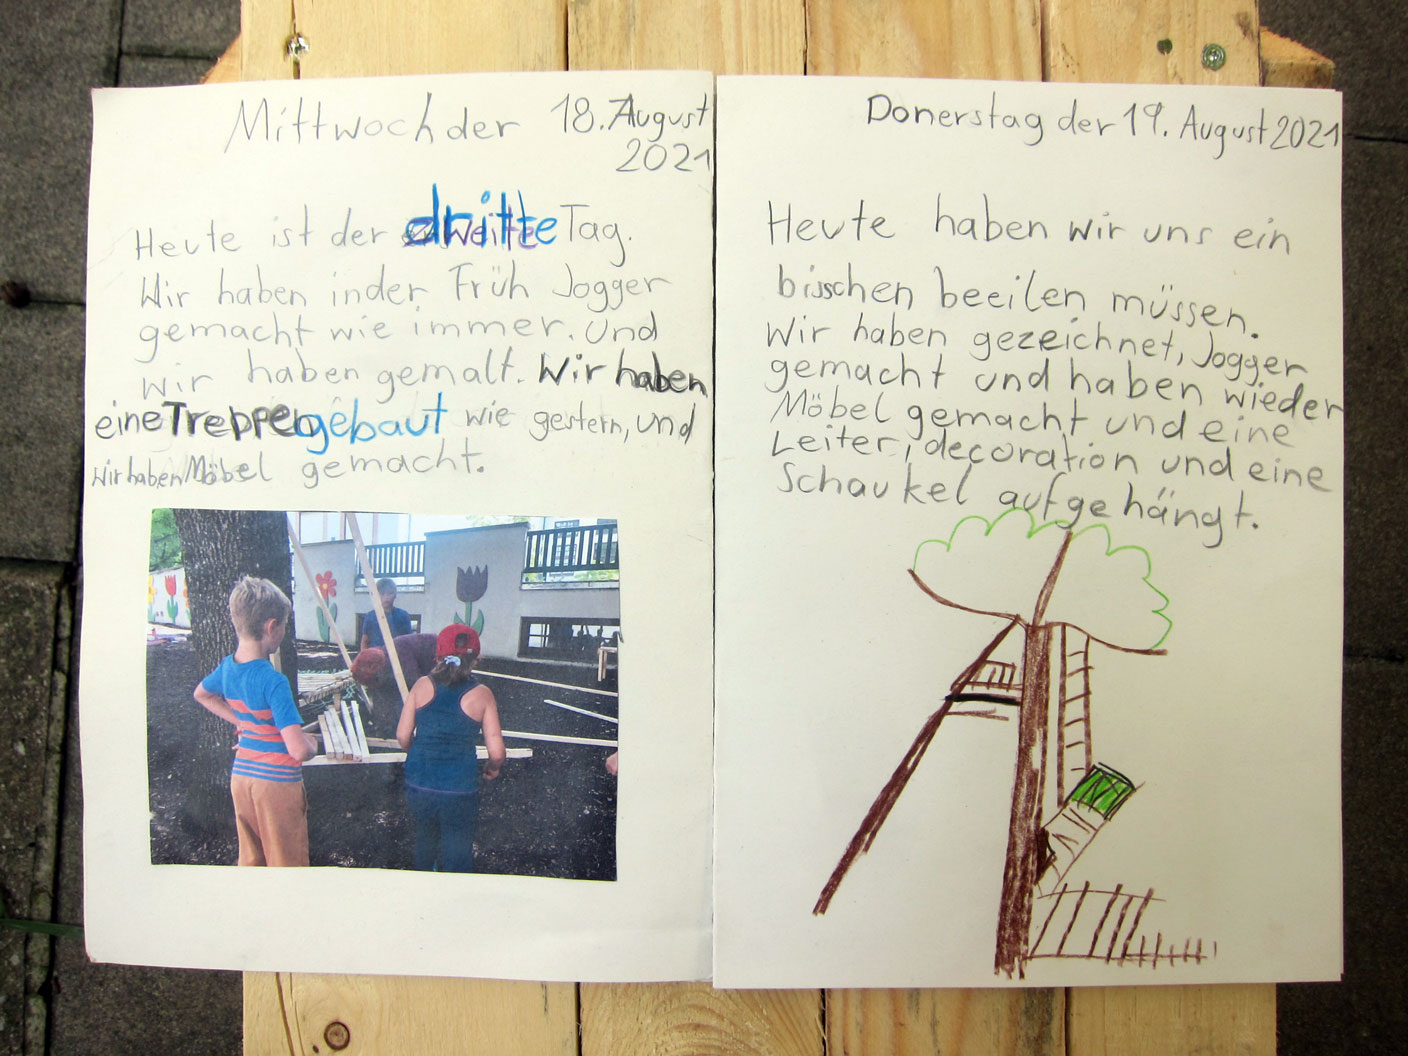 Mittwoch der 18. August
2021
Heute ist der dritte Tag.
Wir haben in der Früh Jogger
gemacht wie immer. Und
wir haben gemalt. Wir haben
eine Treppen gebaut wie gestern, und
wir haben Möbel gemacht.
Donerstag der 19. August 2021
Heute haben wir uns ein
bisschen beeilen müssen.
Wir haben gezeichnet, Jogger
gemacht und haben wieder
Möbel gemacht und eine
Leiter, decoration und eine
Schaukel aufgehängt.